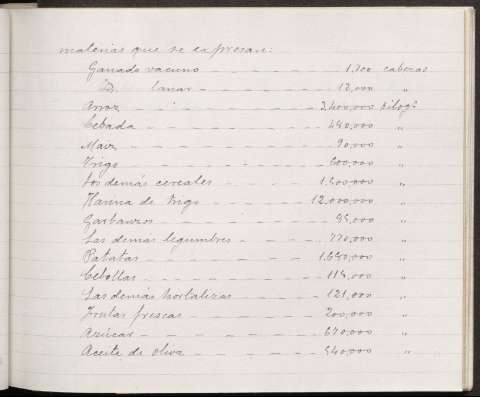 materias que se expresan:
Ganado vacuno — — — — 1,300 cabezas
Id. lanar — — — — 12,000 "
Arroz — — — — 2,400,000 kilogs
Cebada — — — — 480,000 "
Maiz — — — — 90,000 "
Trigo — — — — 600,000 "
Los demás cereales — — — — 1,600,000 "
Harina de trigo — — — — 12.000,000 "
Garbanzos — — — — "
Las demas legumbres — — — — 770,000 "
Patatas — — — — "
Cebollas — — — — 114,000 "
Las demás hortalizas — — — — 121,000 "
Frutas frescas — — — — 200,000 "
Azúcar — — — — 670,000 "
Aceite de oliva — — — — 540,000 "